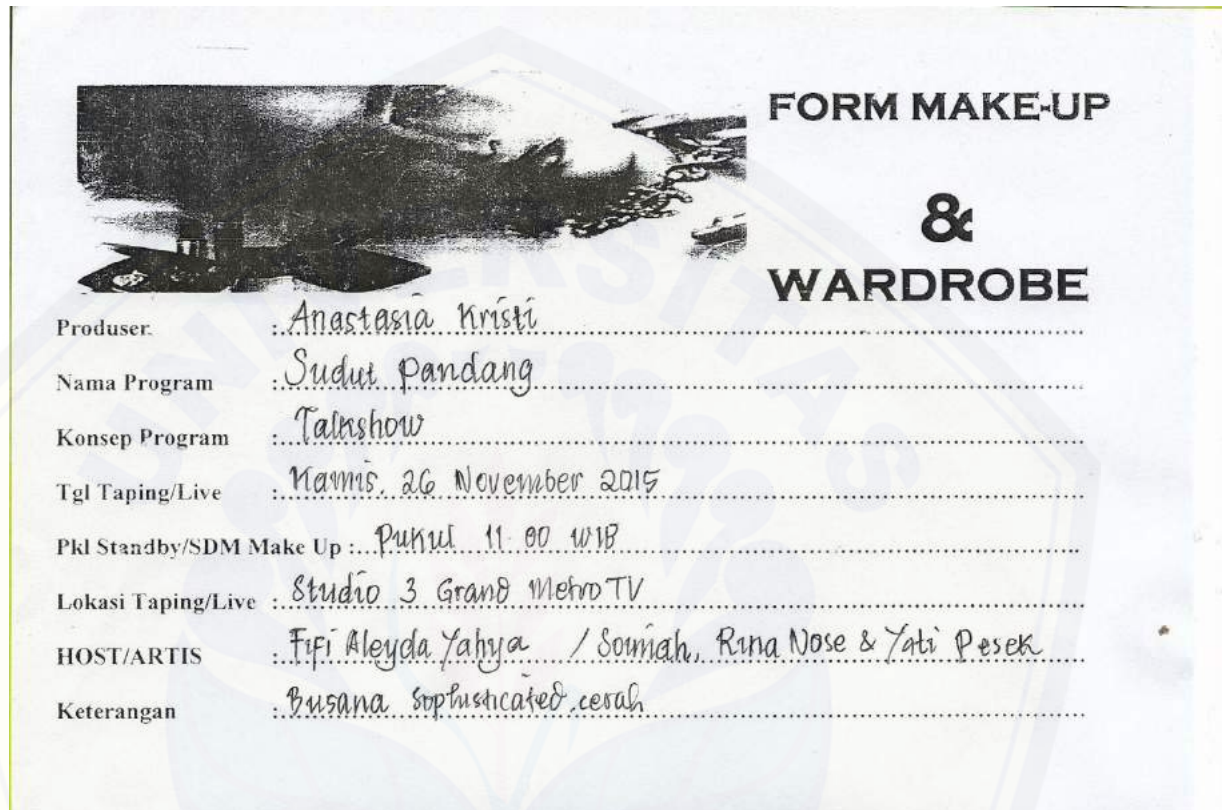 FORM MAKE-UP
&
WARDROBE
Produser : Anastasia Kristi
Nama Program : Sudut Pandang
Konsep Program : Talkshow
Tgl Taping/Live : Kamis, 26 November 2015
Pkl Standby/SDM Make Up : Pukul 11.00 WIB
Lokasi Taping/Live : Studio 3 Grand Metro TV
HOST/ARTIS : Fifi Aleyda Yahya / Soimah, Rina Nose & Yati Pesek
Keterangan : Busana sophisticated, cerah
UNIVERSITAS